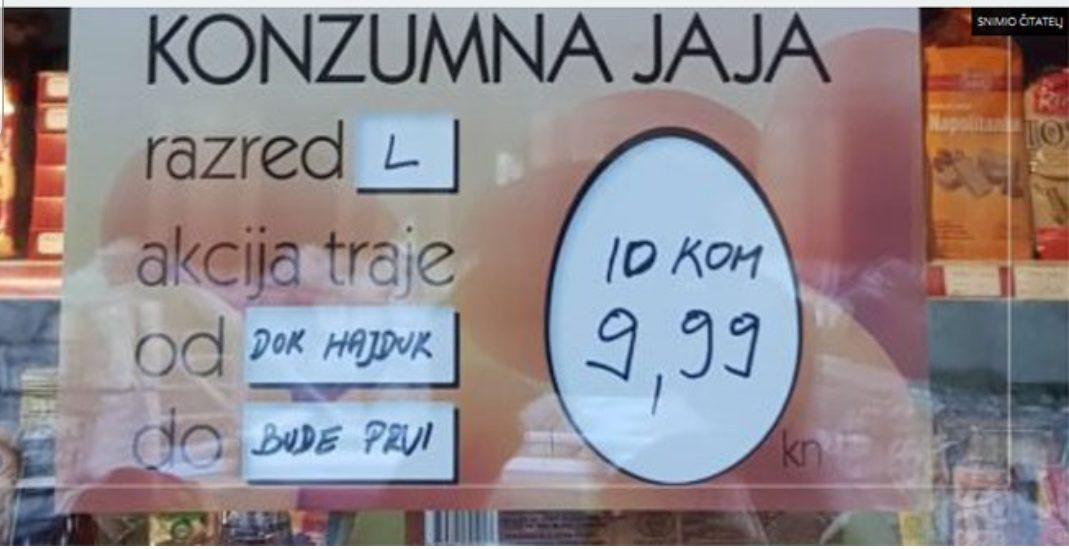 SNIMIO ČITATELJ
KONZUMNA JAJA
razred L
akcija traje
od DOK HAJDUK
do BUDE PRVI
10 KOM
9,99
kn
Napolitanke